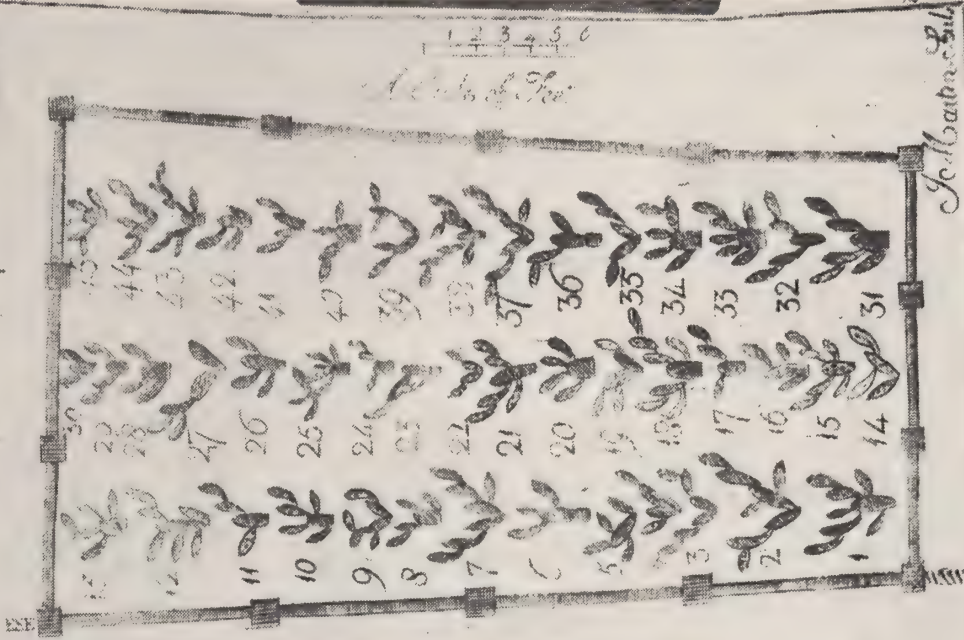 1 2 3 4 5 6
A Scale of Feet
Jo Martin
45 44 43 42 41 40 39 38 37 36 35 34 33 32 31
30 29 28 27 26 25 24 23 22 21 20 19 18 17 16 15 14
13 12 11 10 9 8 7 6 5 4 3 2 1